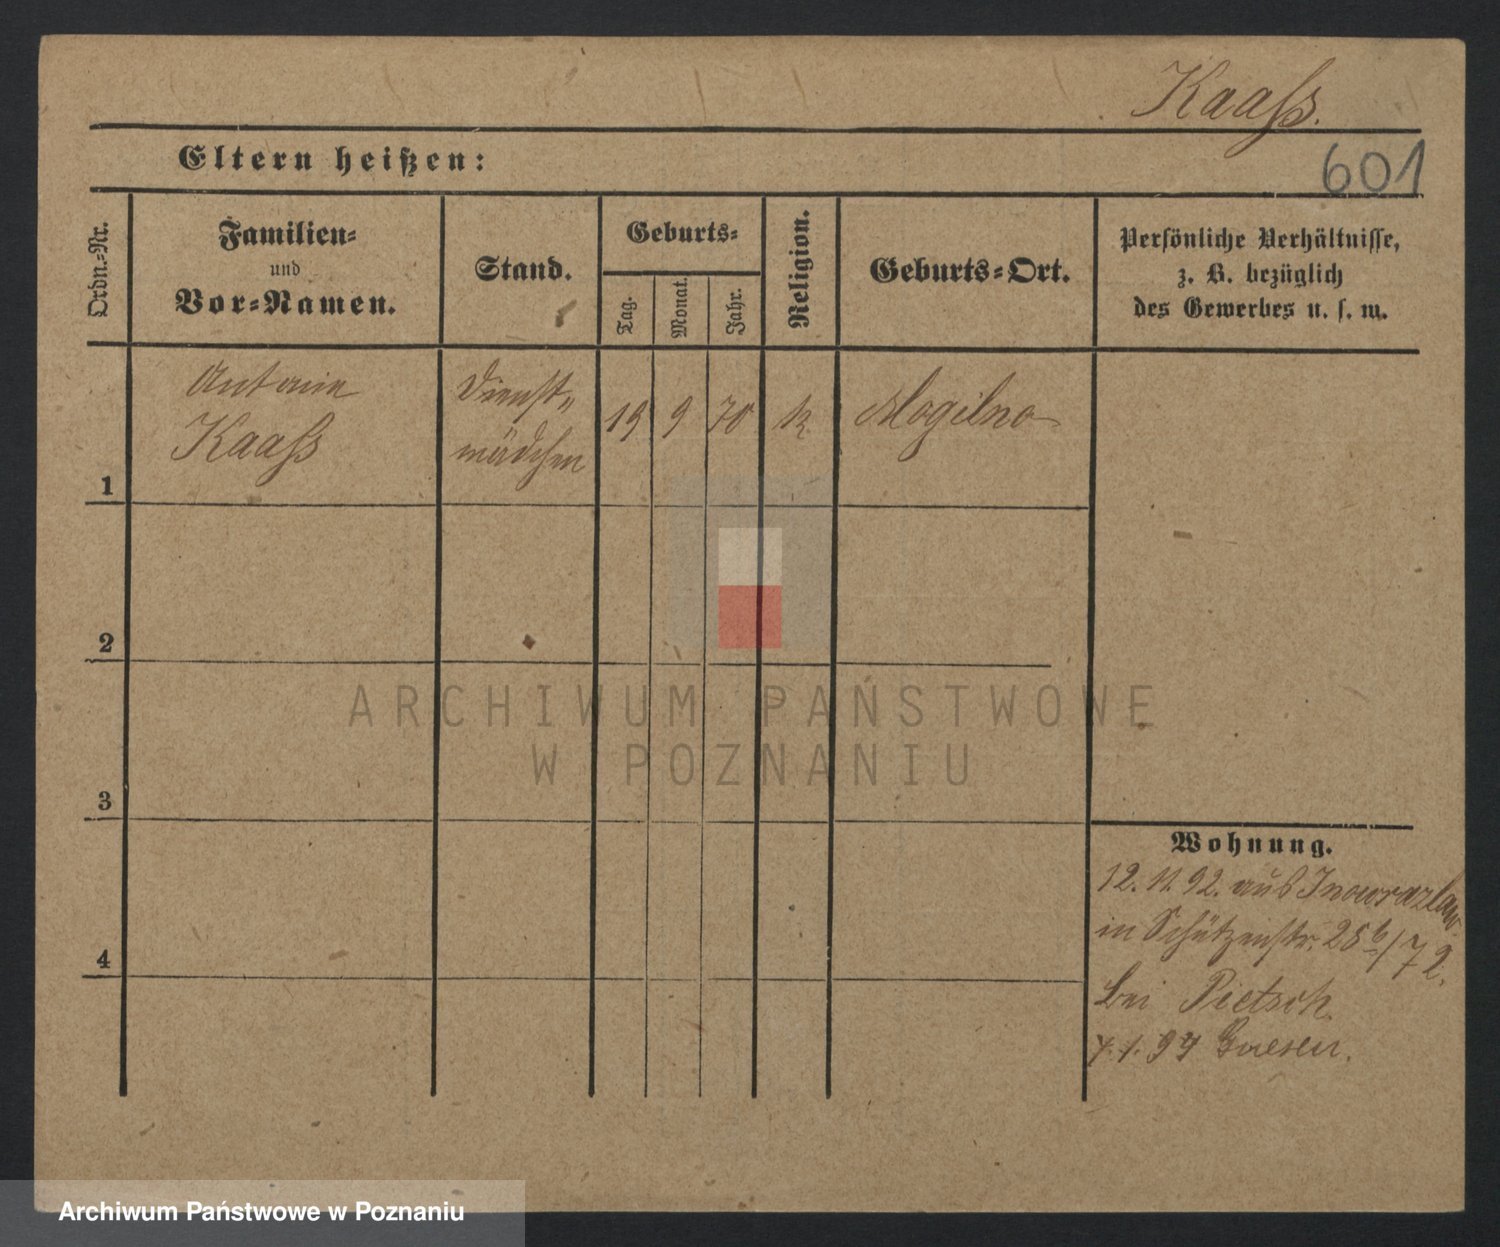 Kaaſs.
Eltern heißen:
601
Ordn.=Nr.
Familien=
und
Vor=Namen.
Stand.
Geburts=
Tag.
Monat.
Jahr.
Religion.
Geburts=Ort.
Persönliche Verhältnisse,
z. B. bezüglich
des Gewerbes u. s. w.
1
Antonie
Kaaſs
Dienst=
mädchen
19
9
70
K.
Mogilno
2
3
4
Wohnung.
12. 11. 92. aus Inowrazlaw
in Schützenstr. 28b/72.
bei Pietsch.
7. 1. 94 Gnesen.
ARCHIWUM PAŃSTWOWE
W POZNANIU
Archiwum Państwowe w Poznaniu